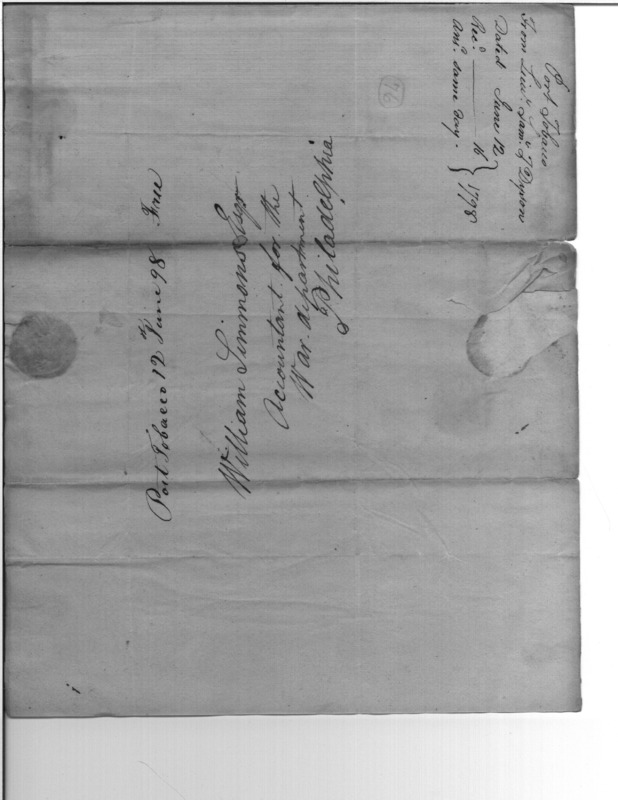 Port Tobacco 12th June 98 Free
William Simmons Esqr
Accountant for the
War department
Philadelphia
Port Tobacco
From Lieut. Sam. T Dyson
Dated June 12
Recd. 16
Ansd. same day. } 1798